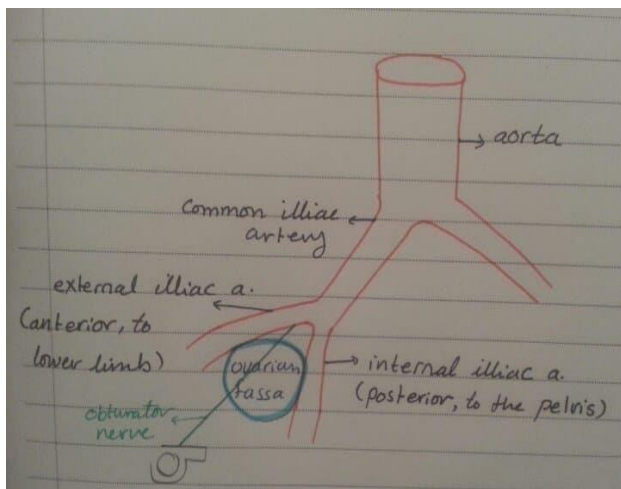 aorta
common illiac
artery
external illiac a.
(anterior, to
lower limb)
ovarian
fassa
internal illiac a.
(posterior, to the pelvis)
obturator
nerve